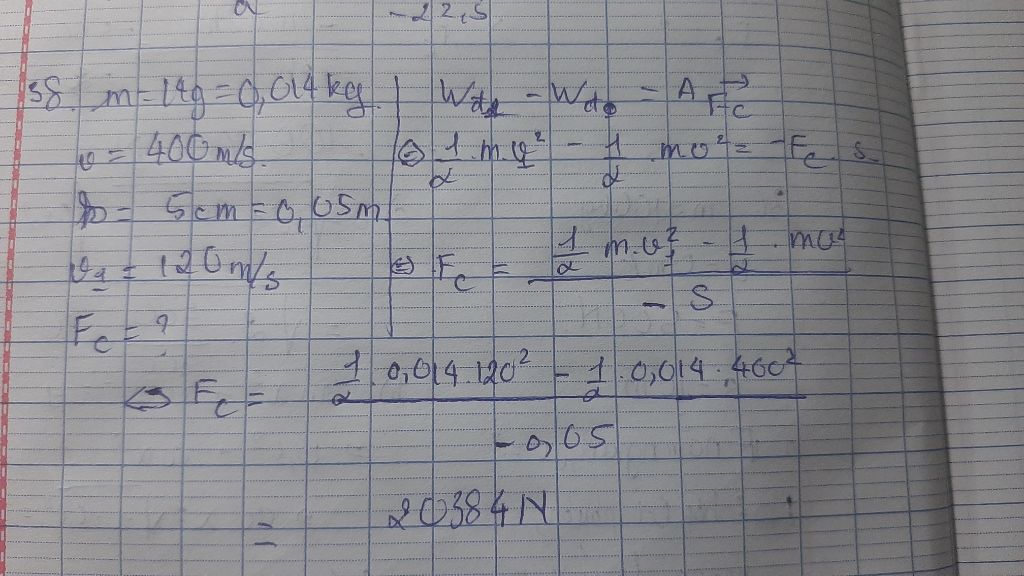 -22,5
38. m=14g=0,014kg
v = 400m/s.
h = 5cm=0,05m
v₂ = 120m/s
F_c = ?
W_đ2 - W_đ0 = A_F⃗c
⇔ 1/2 . m.v² - 1/2 . mv² = -F_c . s
⇔ F_c = (1/2 m.v² - 1/2 . mv²) / - S
⇔ F_c = (1/2 . 0,014.120² - 1/2 . 0,014.400²) / -0,05
= 20384N